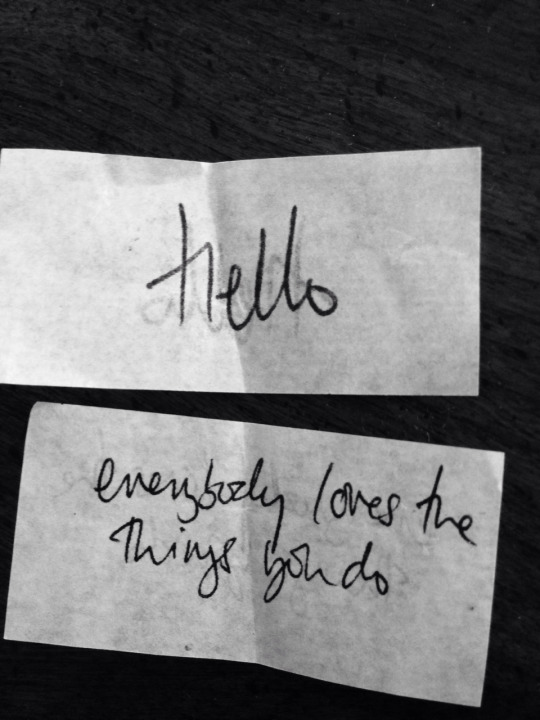 Hello
everybody loves the
things you do